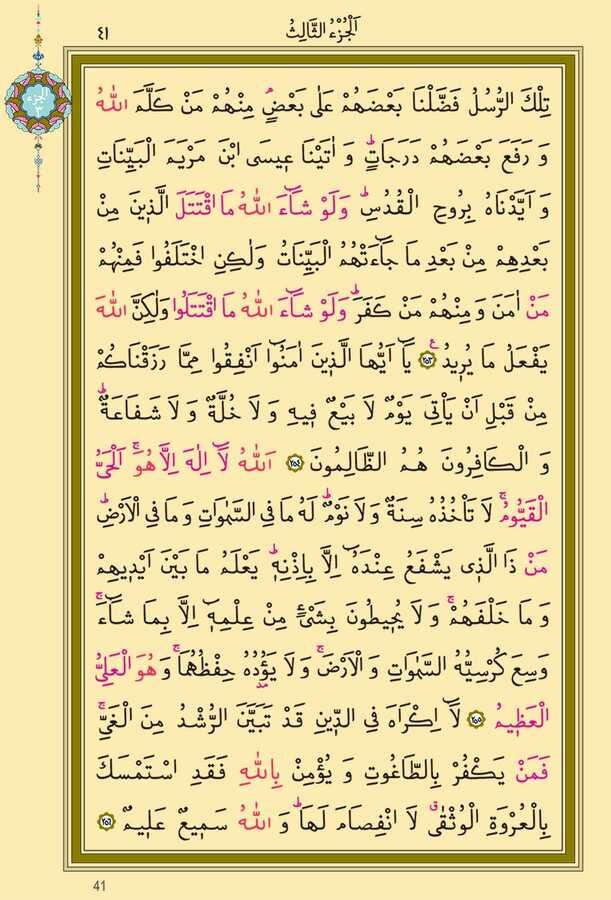 اَلْجُزْءُ الثَّالِثُ
٤١
تِلْكَ الرُّسُلُ فَضَّلْنَا بَعْضَهُمْ عَلٰى بَعْضٍۢ مِنْهُمْ مَنْ كَلَّمَ اللّٰهُ
وَ رَفَعَ بَعْضَهُمْ دَرَجَاتٍۜ وَ اٰتَيْنَا ع۪يسَى ابْنَ مَرْيَمَ الْبَيِّنَاتِ
وَ اَيَّدْنَاهُ بِرُوحِ الْقُدُسِۜ وَلَوْ شَٓاءَ اللّٰهُ مَا اقْتَتَلَ الَّذ۪ينَ مِنْ
بَعْدِهِمْ مِنْ بَعْدِ مَا جَٓاءَتْهُمُ الْبَيِّنَاتُ وَلٰكِنِ اخْتَلَفُوا فَمِنْهُمْ
مَنْ اٰمَنَ وَ مِنْهُمْ مَنْ كَفَرَۜ وَلَوْ شَٓاءَ اللّٰهُ مَا اقْتَتَلُوا وَلٰكِنَّ اللّٰهَ
يَفْعَلُ مَا يُر۪يدُ ٢٥٣ يَٓا اَيُّهَا الَّذ۪ينَ اٰمَنُٓوا اَنْفِقُوا مِمَّا رَزَقْنَاكُمْ
مِنْ قَبْلِ اَنْ يَأْتِيَ يَوْمٌ لَا بَيْعٌ ف۪يهِ وَ لَا خُلَّةٌ وَ لَا شَفَاعَةٌۜ
وَ الْكَافِرُونَ هُمُ الظَّالِمُونَ ٢٥٤ اَللّٰهُ لَٓا اِلٰهَ اِلَّا هُوَۚ اَلْحَيُّ
الْقَيُّومُۚ لَا تَأْخُذُهُ سِنَةٌ وَ لَا نَوْمٌۜ لَهُ مَا فِي السَّمٰوَاتِ وَ مَا فِي الْاَرْضِۜ
مَنْ ذَا الَّذ۪ي يَشْفَعُ عِنْدَهُٓ اِلَّا بِاِذْنِه۪ۜ يَعْلَمُ مَا بَيْنَ اَيْد۪يهِمْ
وَ مَا خَلْفَهُمْۚ وَ لَا يُح۪يطُونَ بِشَيْءٍ مِنْ عِلْمِه۪ٓ اِلَّا بِمَا شَٓاءَۚ
وَسِعَ كُرْسِيُّهُ السَّمٰوَاتِ وَ الْاَرْضَۚ وَ لَا يَؤُ۫دُهُ حِفْظُهُمَاۚ وَ هُوَ الْعَلِيُّ
الْعَظ۪يمُ ٢٥٥ لَٓا اِكْرَاهَ فِي الدّ۪ينِ قَدْ تَبَيَّنَ الرُّشْدُ مِنَ الْغَيِّۚ
فَمَنْ يَكْفُرْ بِالطَّاغُوتِ وَ يُؤْمِنْ بِاللّٰهِ فَقَدِ اسْتَمْسَكَ
بِالْعُرْوَةِ الْوُثْقٰىۗ لَا انْفِصَامَ لَهَاۜ وَ اللّٰهُ سَم۪يعٌ عَل۪يمٌ ٢٥٦
41